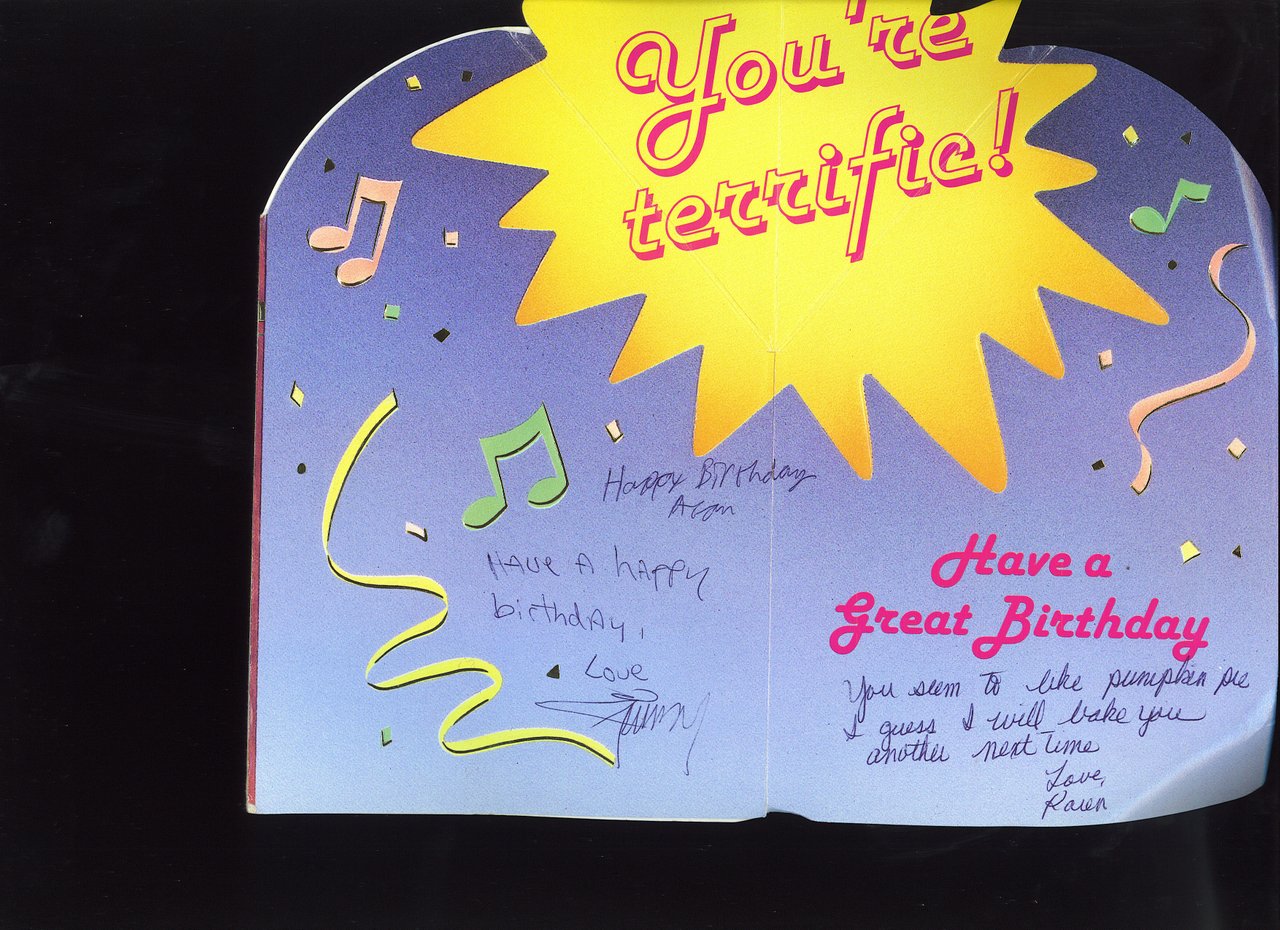 You're
terrific!
Happy Birthday
Have A happy
birthday,
Love
Have a
Great Birthday
You seem to like pumpkin pie
I guess I will bake you
another next time
Love,
Karen